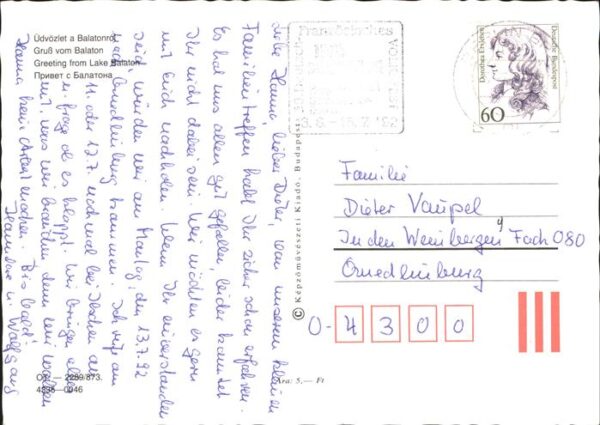 Üdvözlet a Balatonról
Gruß vom Balaton
Greeting from Lake Balaton
Привет с Балатона
Liebe Hanna, lieber Dieter, von unserem kleinen
Familientreffen habt Ihr sicher schon erfahren.
Es hat uns allen gut gefallen, leider konntet
Ihr nicht dabei sein. Wir möchten es gern
mit Euch nachholen. Wenn Ihr einverstanden
seid, würden wir am Montag, den 13.7.92
nach Quedlinburg kommen. Ich rufe am
11. oder 12.7. nochmal bei an
u. frage ob es klappt. Wir bringen
mit was wir brauchen denn wir wollen
Hanna keine Arbeit machen. Bis bald!
u. Wolfgang
2289/873.
0046
Ára: 5,— Ft
© Képzőművészeti Kiadó, Budapest
Französisches
3.6. - 15.7.92
Dorothea Erxleben
Deutsche Bundespost
60
Familie
Dieter Vaupel
In den Weinbergen 4 Fach 080
Quedlinburg
O- 4 3 0 0